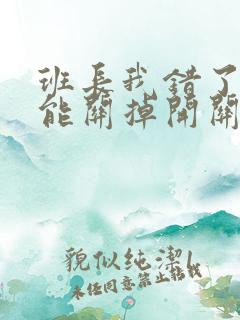 班长我错了
能关掉开关
貌似纯洁l
未经同意禁止转载